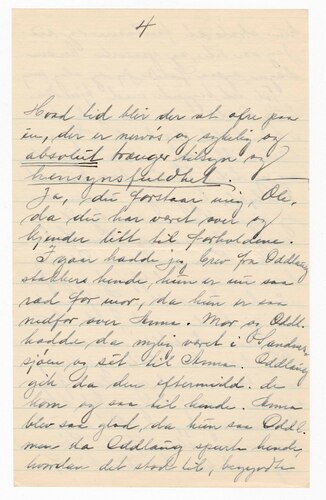 4
Hvad tid blir der at ofre paa
en, der er nervös og sykelig og
absolut trænger tilsyn og
hensynsfuldhet.
Ja, du forstaar mig, Ole,
da du har været over og
kjender litt til forholdene.
I gaar hadde jeg brev fra Oddlaug
stakkers hende, hun er en saa
rad for mor, da hun er saa
nedfor over Anna. Mor og Oddl.
hadde da nylig været i
sjöen og set til Anna. Oddlaug
gik da den eftermidd. de
kom og saa til hende. Anna
blev saa glad, da hun saa Oddl.
men da Oddlaug spurte hende,
hvordan det stod til, begyndte